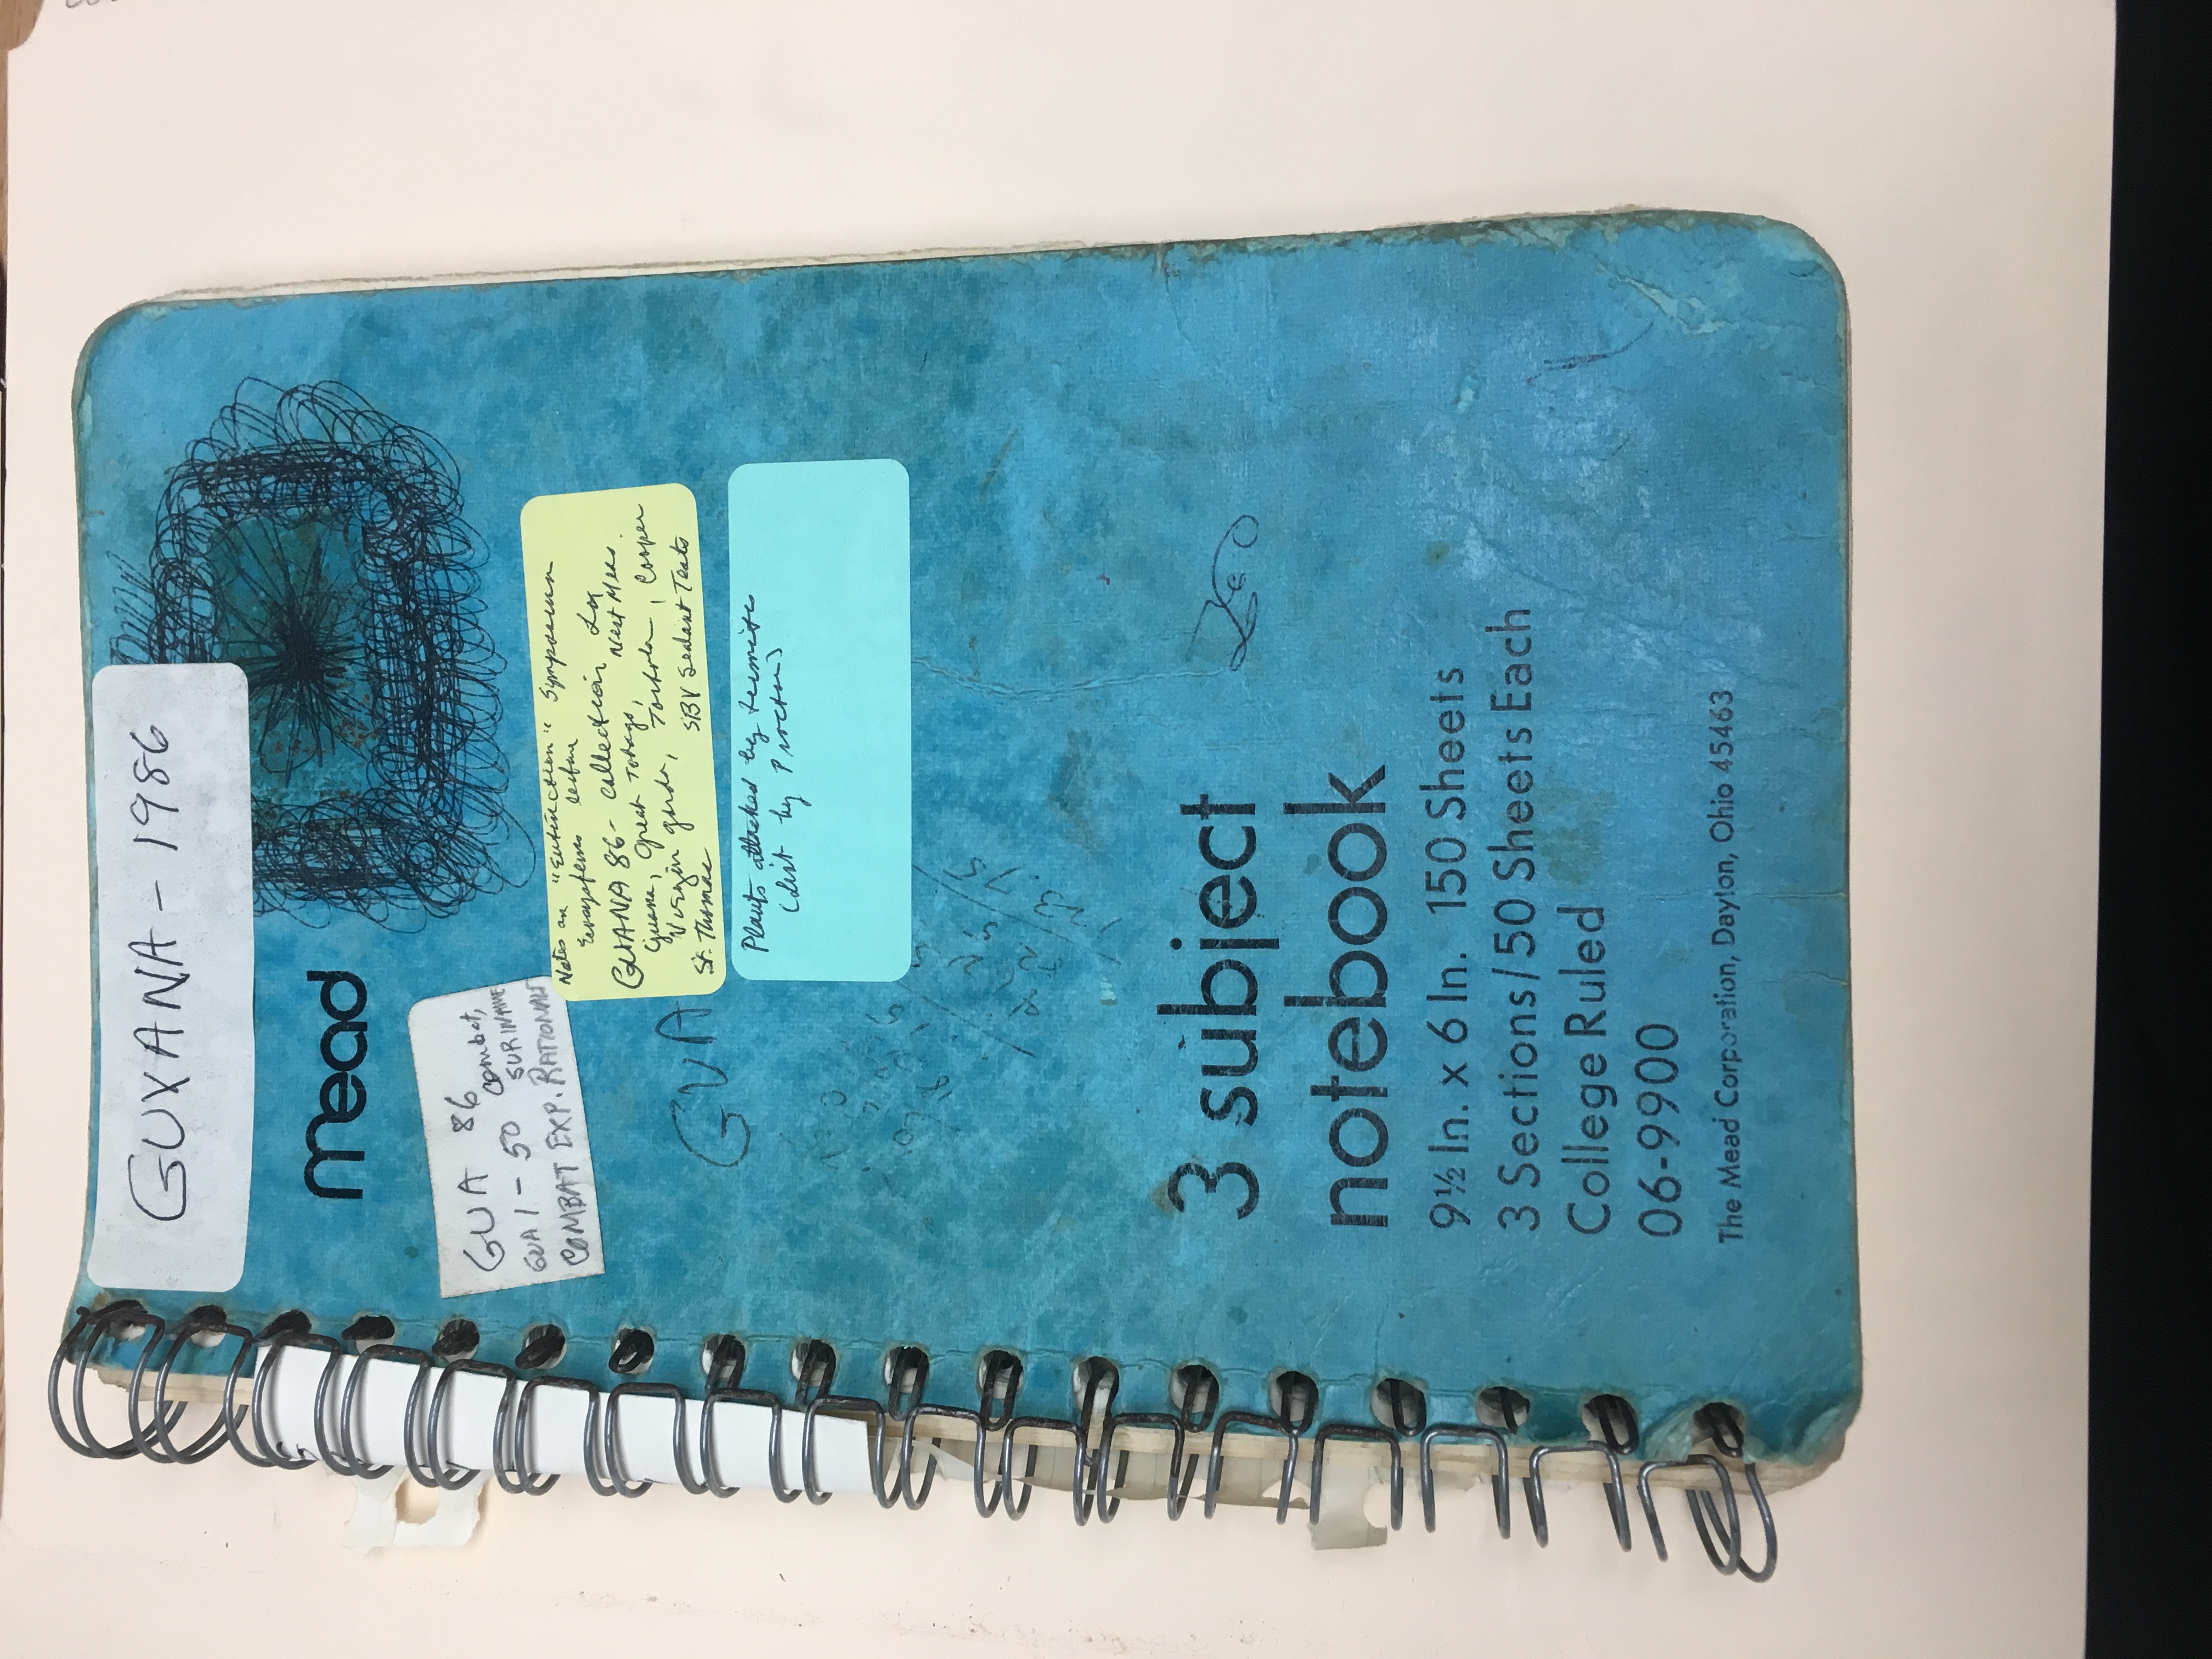 GUYANA - 1986
mead
GUA 86
Combat,
GUA 1 - 50 SURINAME
COMBAT EXP. RATIONALE
Notes on "Extinction" Symposium
Ecosystems lecture
GUANA 86 - collection
Nest Meas.
Guana, Great Tobago,
Virgin Gorda, Tortola, Cooper
St. Thomas SBV Sealant Tests
GUA
Plants attacked by termites
(List by Proctor)
3 subject
notebook
9½ In. x 6 In. 150 Sheets
3 Sections/50 Sheets Each
College Ruled
06-9900
The Mead Corporation, Dayton, Ohio 45463